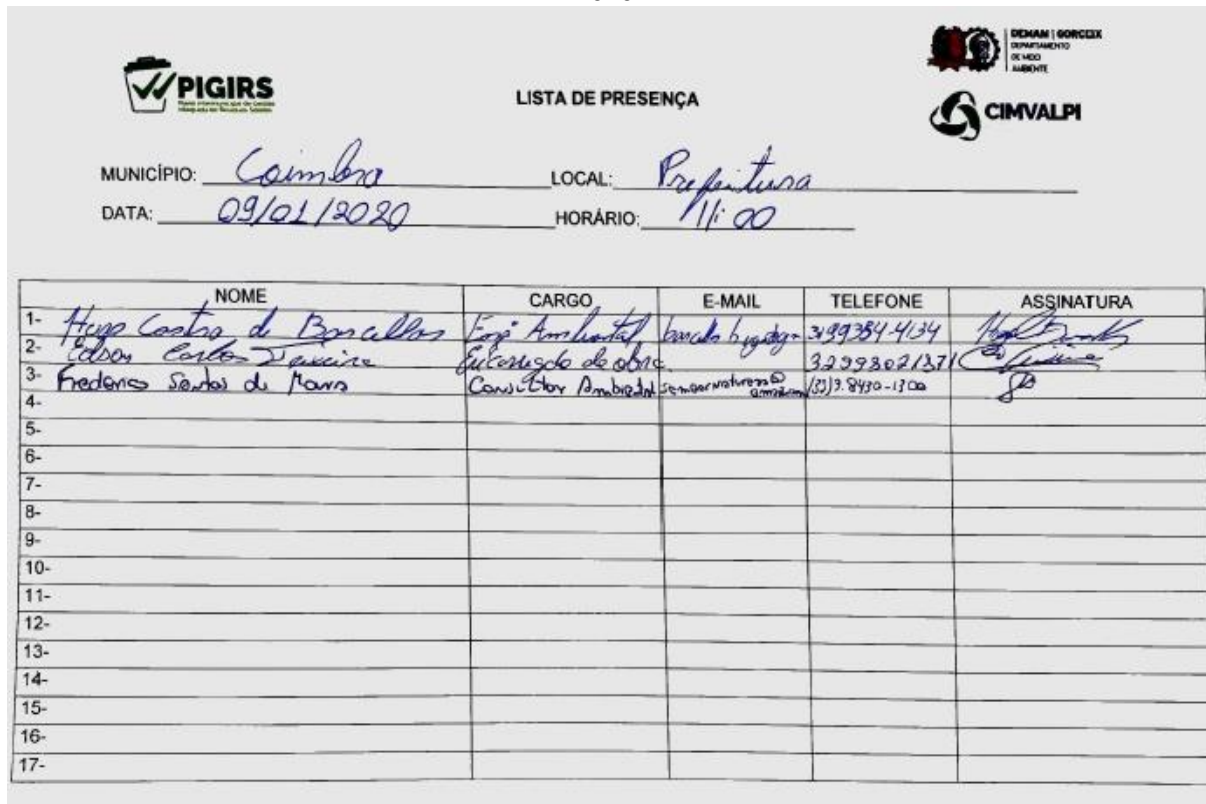 PIGIRS
DEMAM | GORCEIX
DEPARTAMENTO
DE MEIO
AMBIENTE
LISTA DE PRESENÇA
CIMVALPI
MUNICÍPIO: Coimbra LOCAL: Prefeitura
DATA: 09/01/2020 HORÁRIO: 11:00
NOME CARGO E-MAIL TELEFONE ASSINATURA
1- Hugo Castro de Barcellos Engº Ambiental 3199384-4134
2- Edson Carlos Teixeira Encarregado de obra 32998021371
3- Frederico Santos de Consultor Ambiental 9.8430-1300
4-
5-
6-
7-
8-
9-
10-
11-
12-
13-
14-
15-
16-
17-